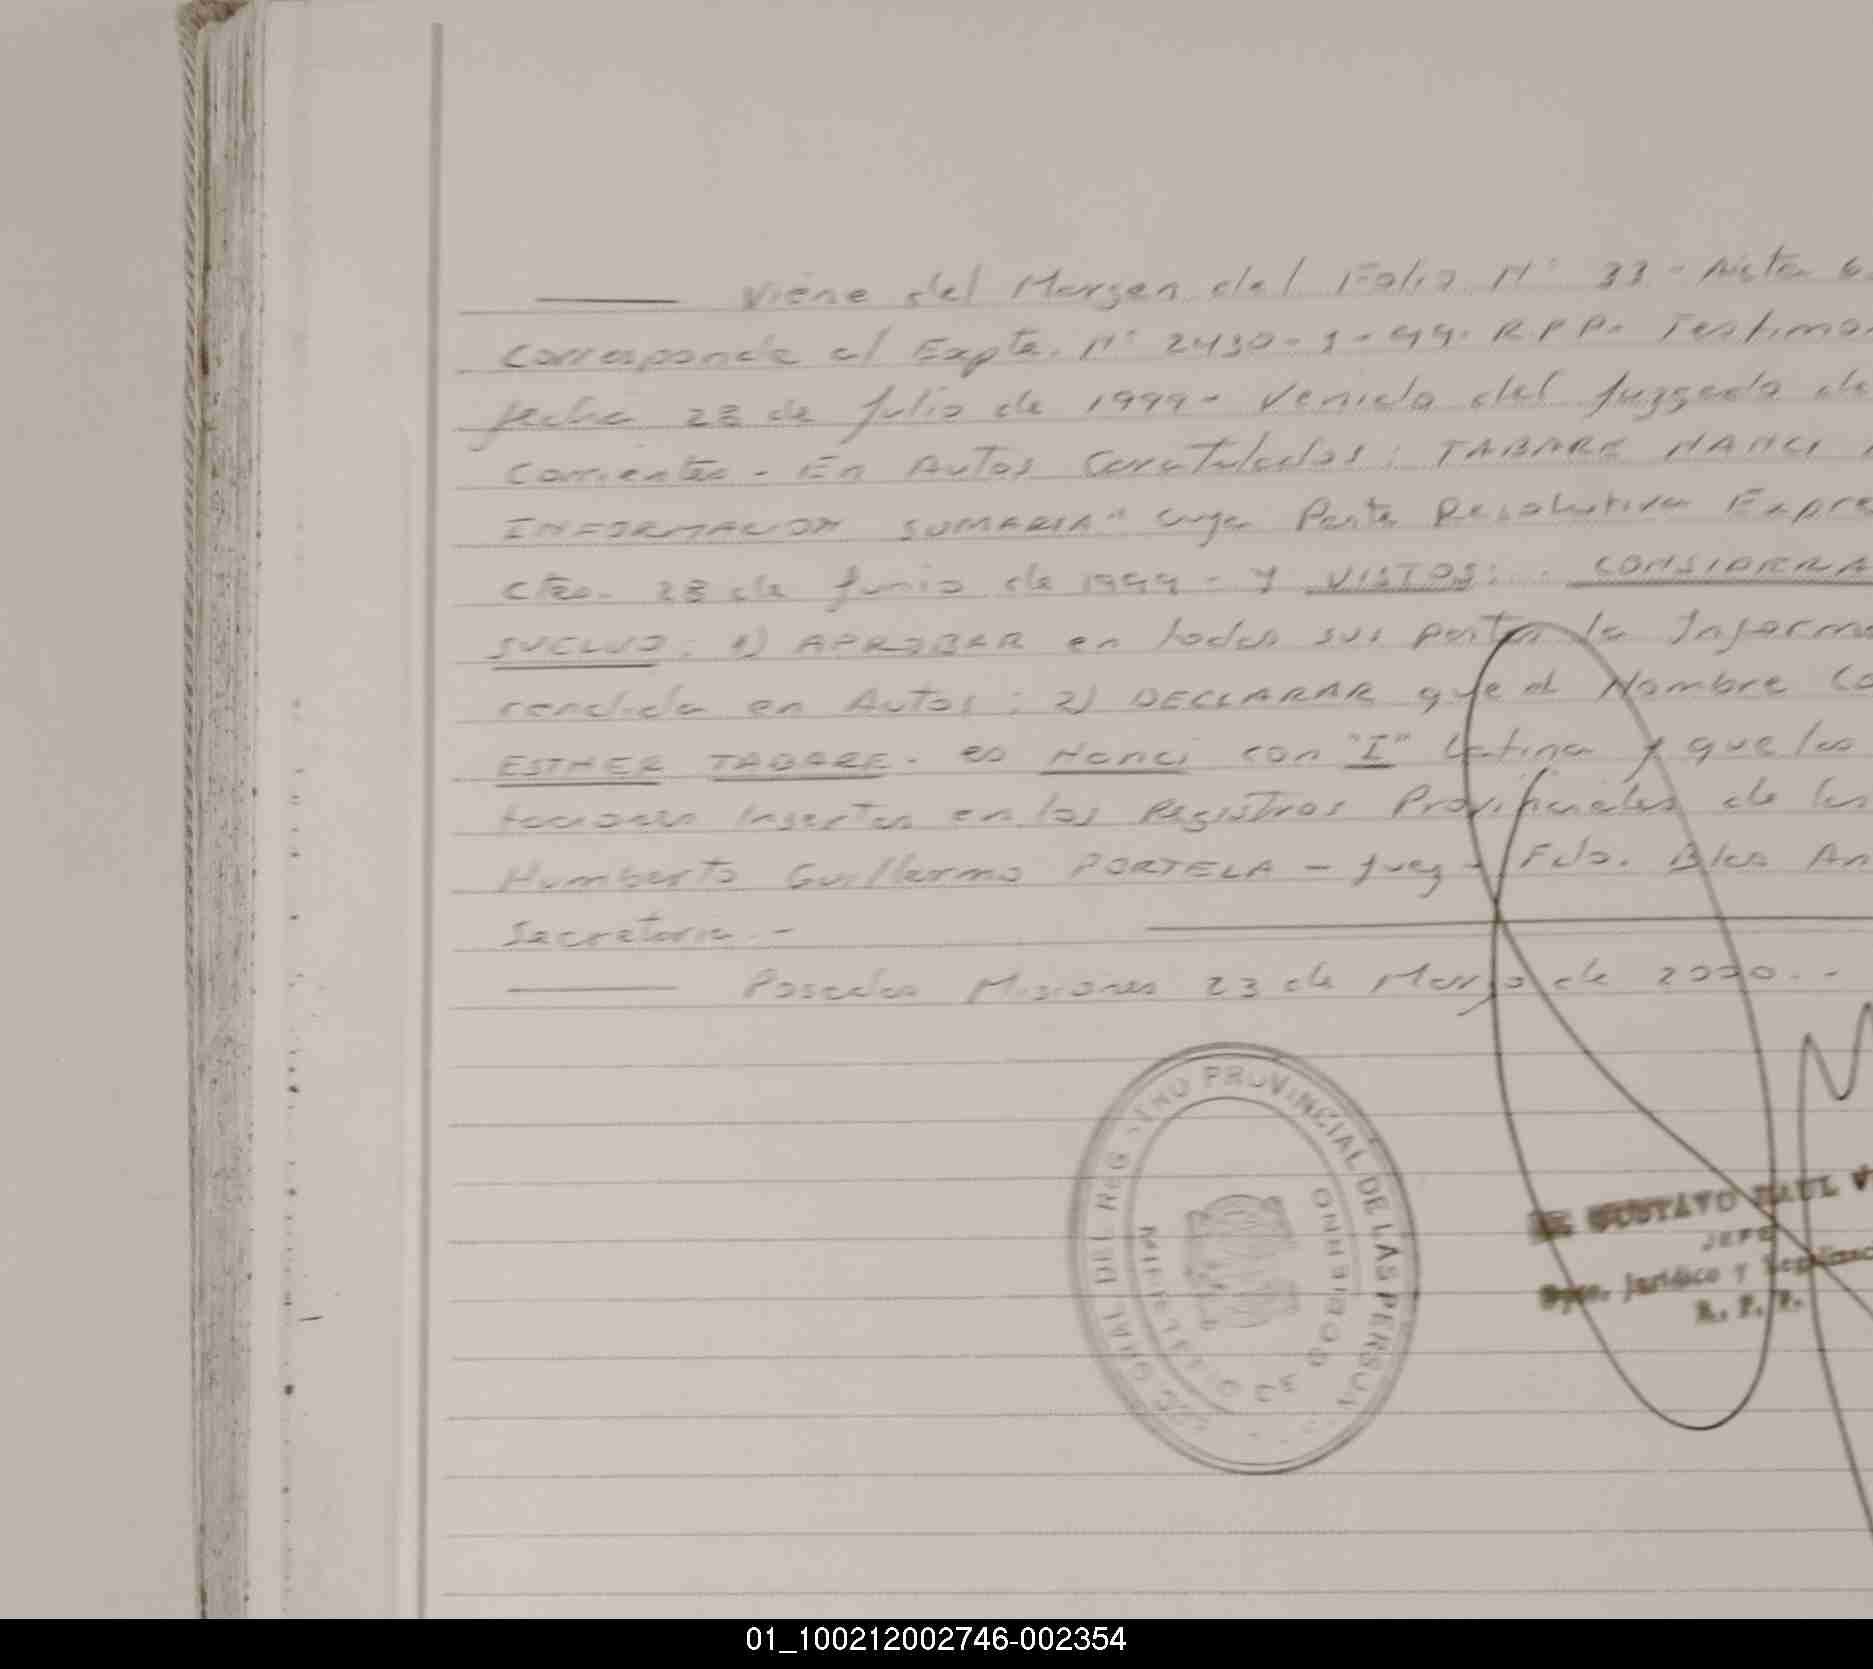 Viene del Margen del Folio N° 33 - Acta 6
Corresponde al Expte. N° 2430-J-99. R.P.P. Testimo
fecha 28 de Julio de 1999 - Venida del Juzgado de
Corrientes - En Autos Caratulados: TABARE NANCI
INFORMACION SUMARIA" cuya Parte Resolutiva Expre
Ctes. 28 de Junio de 1999 - Y VISTOS: . CONSIDERA
SUELVO: 1) APROBAR en todas sus partes la Informa
rendida en Autos; 2) DECLARAR que el Nombre Co
ESTHER TABARE - es Nanci con "I" Latina y que las
taciones Insertas en los Registros Provinciales de las
Humberto Guillermo PORTELA - Juez - Fdo. Blas An
Secretaria.-
Posadas Misiones 23 de Marzo de 2000.-
GRAL DEL REGISTRO PROVINCIAL DE LAS PERSONAS
GOBIERNO
GUSTAVO RAUL V
JEFE
Dpto. Jurídico y Legalizac
R. P. P.
01_100212002746-002354